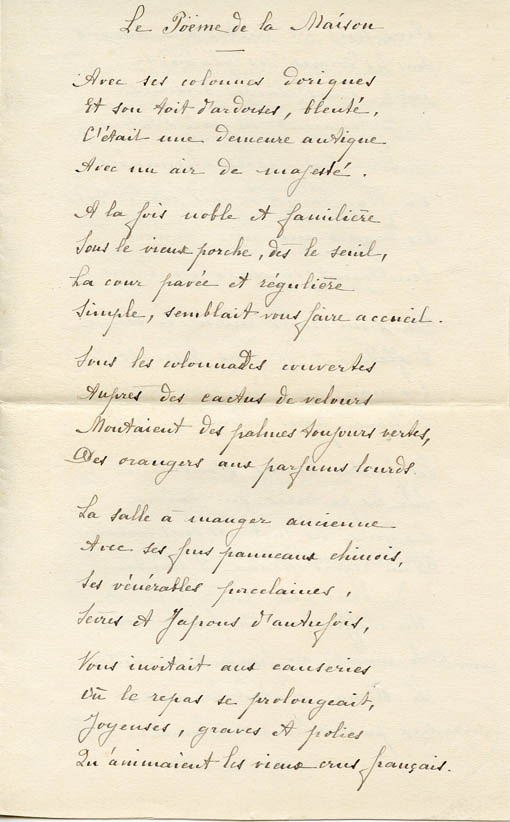 Le Poëme de la Maison
Avec ses colonnes doriques
Et son toit d'ardoises, bleuté,
C'était une demeure antique
Avec un air de majesté.
A la fois noble et familière
Sous le vieux porche, dès le seuil,
La cour pavée et régulière
Simple, semblait vous faire accueil.
Sous les colonnades couvertes
Auprès des cactus de velours
Montaient des palmes toujours vertes,
Des orangers aux parfums lourds.
La salle à manger ancienne
Avec ses fins panneaux chinois,
Ses vénérables porcelaines,
Sèvres et Japons d'autrefois,
Vous invitait aux causeries
Où le repas se prolongeait,
Joyeuses, graves et polies
Qu'animaient les vieux crus français.